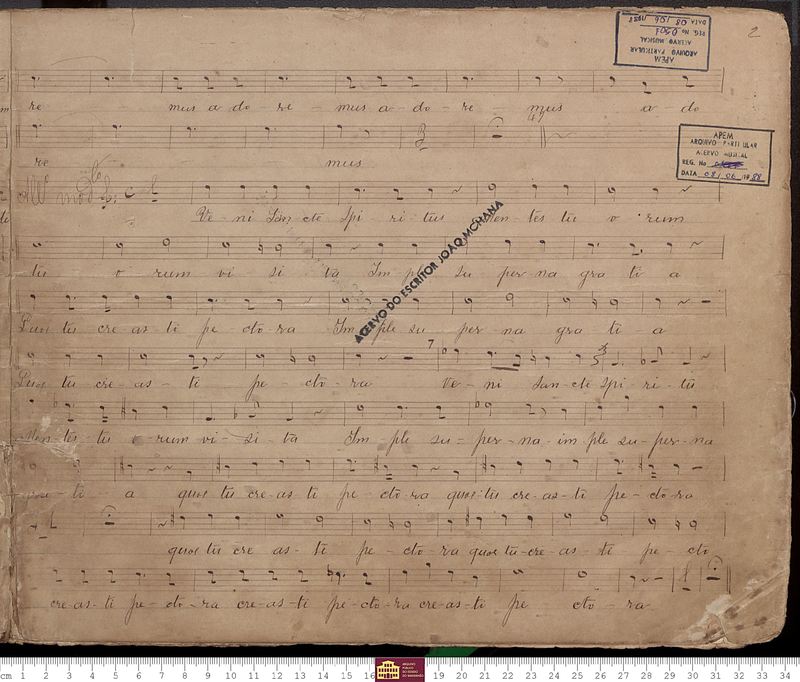 2
APEM
ARQUIVO PARTICULAR
ACERVO MUSICAL
REG. No 0501
DATA 08 / 06 / 1988
re mus a do - re - mus a - do - re - mus a - do
47
re mus
APEM
ARQUIVO PARTICULAR
ACERVO MUSICAL
REG. No
DATA 08 / 06 / 1988
Ve - ni San cte Spi - ri - tus Men - tes tu o rum
ACERVO DO ESCRITOR JOÃO MOHANA
tu o rum vi - si - ta Im ple su per na gra ti a
Quos tu cre - as - ti pe - cto - ra Im - ple su per - na gra - ti a
7
Quos tu cre - as - ti pe - cto - ra Ve - ni San - cte Spi - ri - tu
Men - tes - tu o - rum vi - si - ta Im - ple su = per - na - im ple su - per - na
gra - ti - a quos tu cre - as - ti pe - cto - ra quos - tu cre - as - ti pe - cto - ra
quos tu cre as - ti pe - cto - ra quos tu - cre - as - ti pe - cto
cre - as - ti pe - cto - ra cre - as - ti pe - cto - ra cre - as - ti pe cto - ra
cm 1 2 3 4 5 6 7 8 9 10 11 12 13 14 15 16 19 20 21 22 23 24 25 26 27 28 29 30 31 32 33 34